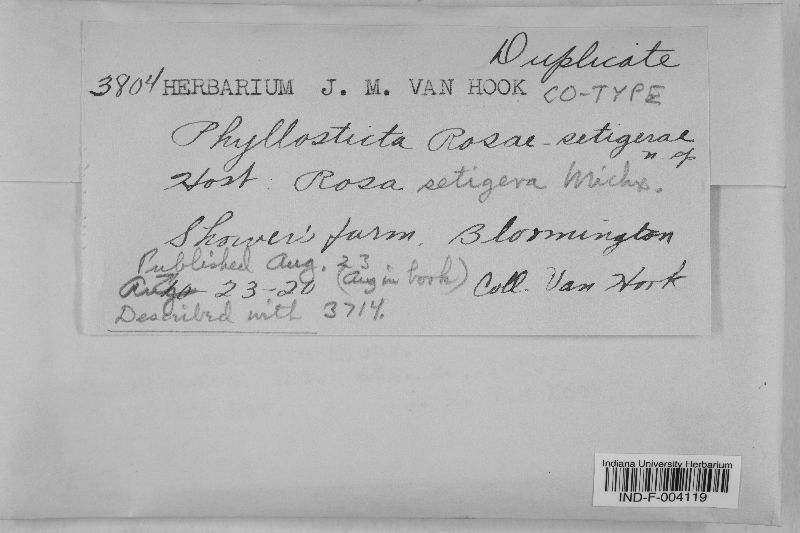 Duplicate
3804 HERBARIUM J. M. VAN HOOK CO-TYPE
Phyllosticta Rosae-setigerae
n. sp
Host: Rosa setigera Michx.
Showers' farm, Bloomington
Published Aug. 23
23-20 (Aug in book) Coll. Van Hook
Described with 3714.
Indiana University Herbarium
IND-F-004119